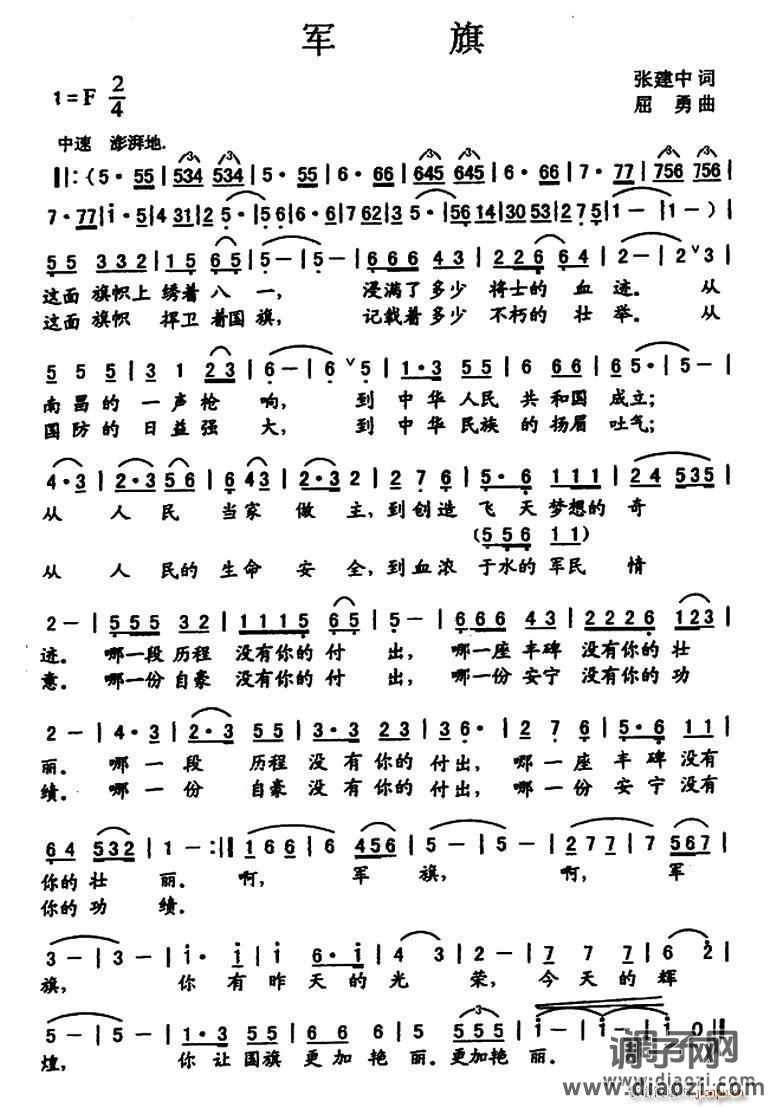 军 旗
1=F 2/4
张建中 词
屈 勇 曲
中速 澎湃地.
‖:(5·55|534 534|5·55|5·55|6·66|645 645|6·66|6·66|7·77|756 756|
7·77|i·5|4 31|2 5·|56 6·|6 762|3·5|56 14|30 53|2 75|1—|1—)|
55 332|15 65|5—|5—|666 43|226 64|2—|2ˇ3|
这面 旗帜上 绣着 八 一, 浸满了 多少 将士的 血 迹。 从
这面 旗帜 捍卫 着国 旗, 记载着 多少 不朽的 壮 举。 从
5 5 5|3 1 23|6—|6ˇ5|1·3 55|6 666|65·|5—|
南昌的 一声枪 响, 到 中华 人民 共 和国 成立;
国防的 日益强 大, 到 中华 民族 的 扬眉 吐气;
4·3|2·3 56|6 43|2·3|2 7 6|5·6 111|24 535|
从 人 民 当家 做 主, 到创造 飞 天 梦想的 奇
(556 11)
从 人 民的 生命 安 全, 到血浓 于水的 军民 情
2—|555 32|1115 65|5—|666 43|2226 123|
迹。 哪一段 历程 没有你的 付 出, 哪一座 丰碑 没有你的 壮
意。 哪一份 自豪 没有你的 付 出, 哪一份 安宁 没有你的 功
2—|4·3|2·3 55|3·3 23|36·|2 7 6|5·6 11|
丽。 哪 一 段 历程 没 有 你的 付出, 哪 一座 丰 碑 没有
绩。 哪 一 份 自豪 没 有 你的 付出, 哪 一份 安 宁 没有
64 532|1—:‖166|6—|456|5—|5—|277|7—|567|
你的 壮 丽。 啊, 军 旗, 啊, 军
你的 功 绩。
3—|3—|i· i|i i|6·i|4 3|2—|7 7 7|6 2|
旗, 你 有 昨 天 的 光 荣, 今 天 的 辉
5—|5—|1·3|5 5|6·6|5 2|555 5|i—|i—|i 0‖
煌, 你 让 国旗 更加 艳 丽。更加艳 丽。
调子网
www.diaozi.com